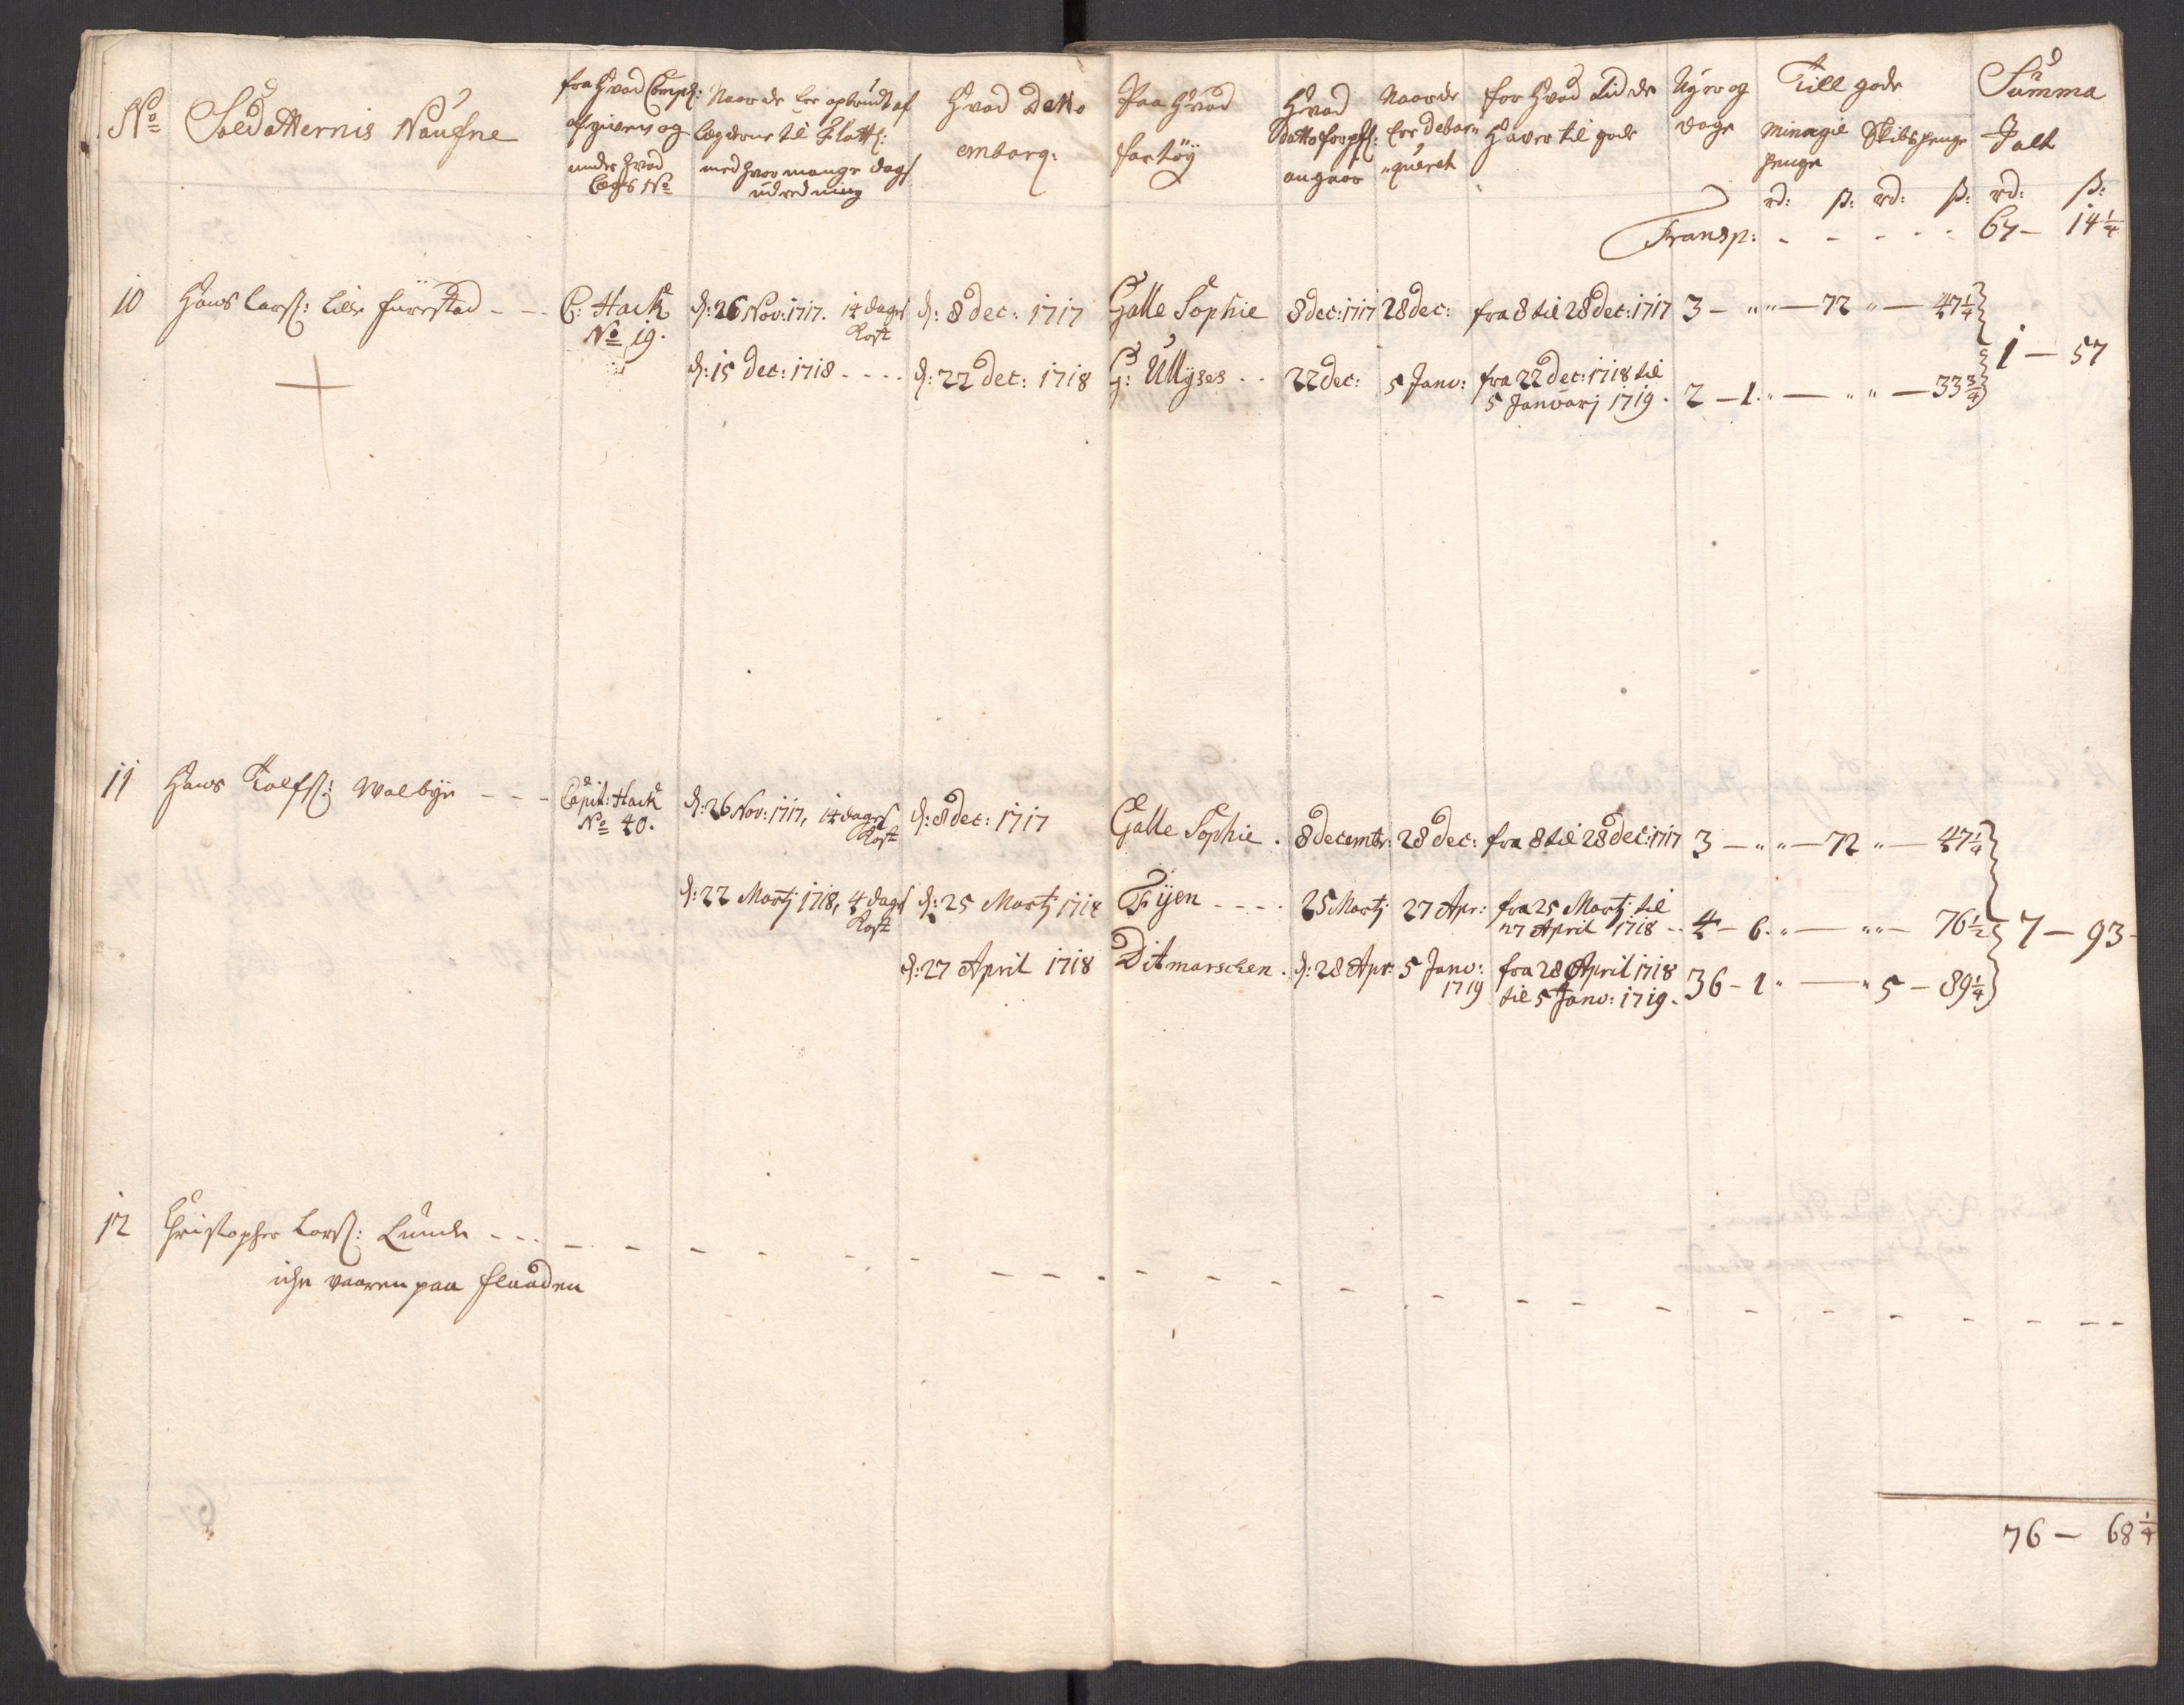 No
Soldatternis Naufne
fra hvad Comp:
afgiven og
under hvad
Lægs No
Naar de ere opbudt af
Lægderne til Flott:
med hvor mange dags
udredning
Hvad Datto
embarq:
Paa hvad
fartøy
Hvad
Datto forpfl:
angaar
Naar de
ere debar„
„queret
for hvad tid de
haver til gode
Uger og
dage
Till gode
minagie
penge
Skibspenge
Summa
Jalt
rd: ß: rd: ß: rd: ß:
Transp: - - - - - 67 - 14 1/4
10 Hans Larss: Lille - - - C: Hack d: 26 Nov: 1717. 14 dages d: 8 dec: 1717 Galle Sophie 8 dec: 1717 28 dec: fra 8 til 28 dec: 1717 3 - „ „ - 72 „ - 47 1/4
No 19. Kost
1 - 57
d: 15 dec: 1718 - - - - d: 22 dec: 1718 G: Ullyses - - 22 dec: 5 Janv: fra 22 dec: 1718 til
5 Januarj 1719. 2 - 1. „ - „ „ - 33 3/4
11 Hans Rolfss: Walbye - - - Capit: Hack d: 26 Nov: 1717, 14 dages d: 8 dec: 1717 Galle Sophie . 8 decembr: 28 dec: fra 8 til 28 dec: 1717 3 - „ „ - 72 „ - 47 1/4
No 40. Kost
d: 22 Martj 1718, 4 dags d: 25 Martj 1718 Fyen - - - - 25 Martj 27 Apr: fra 25 Martj til
Kost 27 April 1718 - - 4 - 6. „ - „ „ - 76 1/2 7 - 93 -
d: 27 April 1718 Ditmarschen . d: 28 Apr: 5 Janv: fra 28 April 1718
1719 til 5 Janv: 1719. 36 - 1 „ - „ 5 - 89 1/4
12 Christopher Larss: Lunde - - -
iche vaaren paa flaaden
76 - 68 1/4